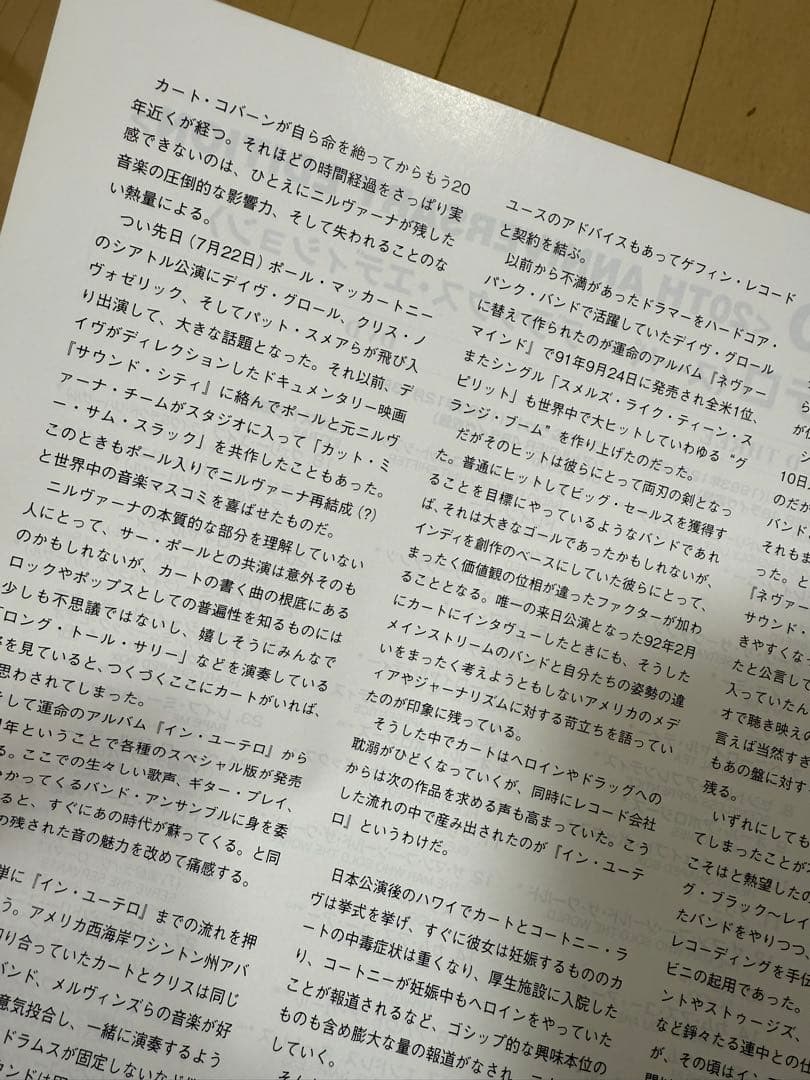 カート・コバーンが自ら命を絶ってからもう20
年近くが経つ。それほどの時間経過をさっぱり実
感できないのは、ひとえにニルヴァーナが残した
音楽の圧倒的な影響力、そして失われることのな
い熱量による。
つい先日(7月22日)ポール・マッカートニー
のシアトル公演にデイヴ・グロール、クリス・ノ
ヴォゼリック、そしてパット・スメアらが飛び入
り出演して、大きな話題となった。それ以前、デ
イヴがディレクションしたドキュメンタリー映画
『サウンド・シティ』に絡んでポールと元ニルヴ
ァーナ・チームがスタジオに入って「カット・ミ
ー・サム・スラック」を共作したこともあった。
このときもポール入りでニルヴァーナ再結成(?)
と世界中の音楽マスコミを喜ばせたものだ。
ニルヴァーナの本質的な部分を理解していない
人にとって、サー・ポールとの共演は意外そのも
のかもしれないが、カートの書く曲の根底にある
ロックやポップスとしての普遍性を知るものには
少しも不思議ではないし、嬉しそうにみんなで
「ロング・トール・サリー」などを演奏している
を見ていると、つくづくここにカートがいれば、
思わされてしまった。
して運命のアルバム『イン・ユーテロ』から
年ということで各種のスペシャル版が発売
る。ここでの生々しい歌声、ギター・プレイ、
かかってくるバンド・アンサンブルに身を委
ると、すぐにあの時代が蘇ってくる。と同
の残された音の魅力を改めて痛感する。
単に『イン・ユーテロ』までの流れを押
う。アメリカ西海岸ワシントン州アバ
り合っていたカートとクリスは同じ
バンド、メルヴィンズらの音楽が好
意気投合し、一緒に演奏するよう
ドラムスが固定しないなど
ユースのアドバイスもあってゲフィン・レコード
と契約を結ぶ。
以前から不満があったドラマーをハードコア・
パンク・バンドで活躍していたデイヴ・グロール
に替えて作られたのが運命のアルバム『ネヴァー
マインド』で91年9月24日に発売され全米1位、
またシングル「スメルズ・ライク・ティーン・ス
ピリット」も世界中で大ヒットしていわゆる “グ
ランジ・ブーム” を作り上げたのだった。
だがそのヒットは彼らにとって両刃の剣となっ
た。普通にヒットしてビッグ・セールスを獲得す
ることを目標にやっているようなバンドであれ
ば、それは大きなゴールであったかもしれないが、
インディを創作のベースにしていた彼らにとって、
まったく価値観の位相が違ったファクターが加わ
ることとなる。唯一の来日公演となった92年2月
にカートにインタヴューしたときにも、そうした
メインストリームのバンドと自分たちの姿勢の違
いをまったく考えようともしないアメリカのメデ
ィアやジャーナリズムに対する苛立ちを語ってい
たのが印象に残っている。
そうした中でカートはヘロインやドラッグへの
耽溺がひどくなっていくが、同時にレコード会社
からは次の作品を求める声も高まっていた。こう
した流れの中で産み出されたのが『イン・ユーテ
ロ』というわけだ。
日本公演後のハワイでカートとコートニー・ラ
ヴは挙式を挙げ、すぐに彼女は妊娠するもののカ
ートの中毒症状は重くなり、厚生施設に入院した
り、コートニーが妊娠中もヘロインをやっていた
ことが報道されるなど、ゴシップ的な興味本位の
ものも含め膨大な量の報道がなされ
していく。
が
10日
のだが
バンド、
それもま
った。と
『ネヴァー
サウンド・
きやすくなっ
たと公言して
入っていたん
オで聴き映えの
言えば当然すぎ
もあの盤に対す
残る。
いずれにしても
てしまったことが
こそはと熱望したの
グ・ブラック〜レイ
たバンドをやりつつ、
レコーディングを手伝
ビニの起用であった。
ントやストゥージズ、
など錚々たる連中との仕
が、その頃はイン